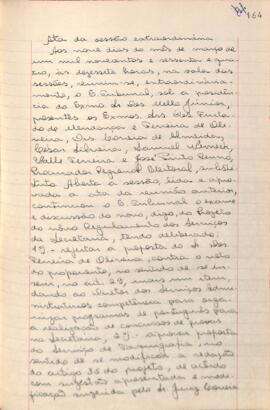 164
Ata da sessão extraordinária
Aos nove dias do mês de março de
um mil novecentos e sessenta e qua-
tro, às dezessete horas, na sala das
sessões, reuniu-se, extraordinària-
mente, o E. Tribunal, sob a presidên-
cia do Exmo. Sr. Des. Mello Júnior,
presentes os Exmos. Srs. Des.
do de Mendonça e Ferreira de Oli-
veira, Drs. Corrêa de Almeida,
César Silveira, Samuel Werneck,
Valle Ferreira e José Pinto Renno,
Procurador Regional Eleitoral, substi-
tuto. Aberta a sessão, lida e apro-
vada a ata da reunião anterior,
continuou o E. Tribunal o exame
e discussão do novo, digo, do Projeto
do novo Regulamento dos Serviços
da Secretaria, tendo deliberado:
1º - rejeitar a proposta do Sr. Des.
Ferreira de Oliveira, contra o voto
do proponente, no sentido de se in-
serir, no art. 29, mais um item,
dando ao Diretor dos Serviços Admi-
nistrativos competência para orga-
nizar programas de português para
a realização de concursos de
na Secretaria; 2º - aprovar proposta
do Serviço de Taquigrafia, no
sentido de se modificar a redação
do artigo 26 do projeto, de acôrdo
com sugestão apresentada e modi-
ficação sugerida pelo Sr. Juiz Corrêa